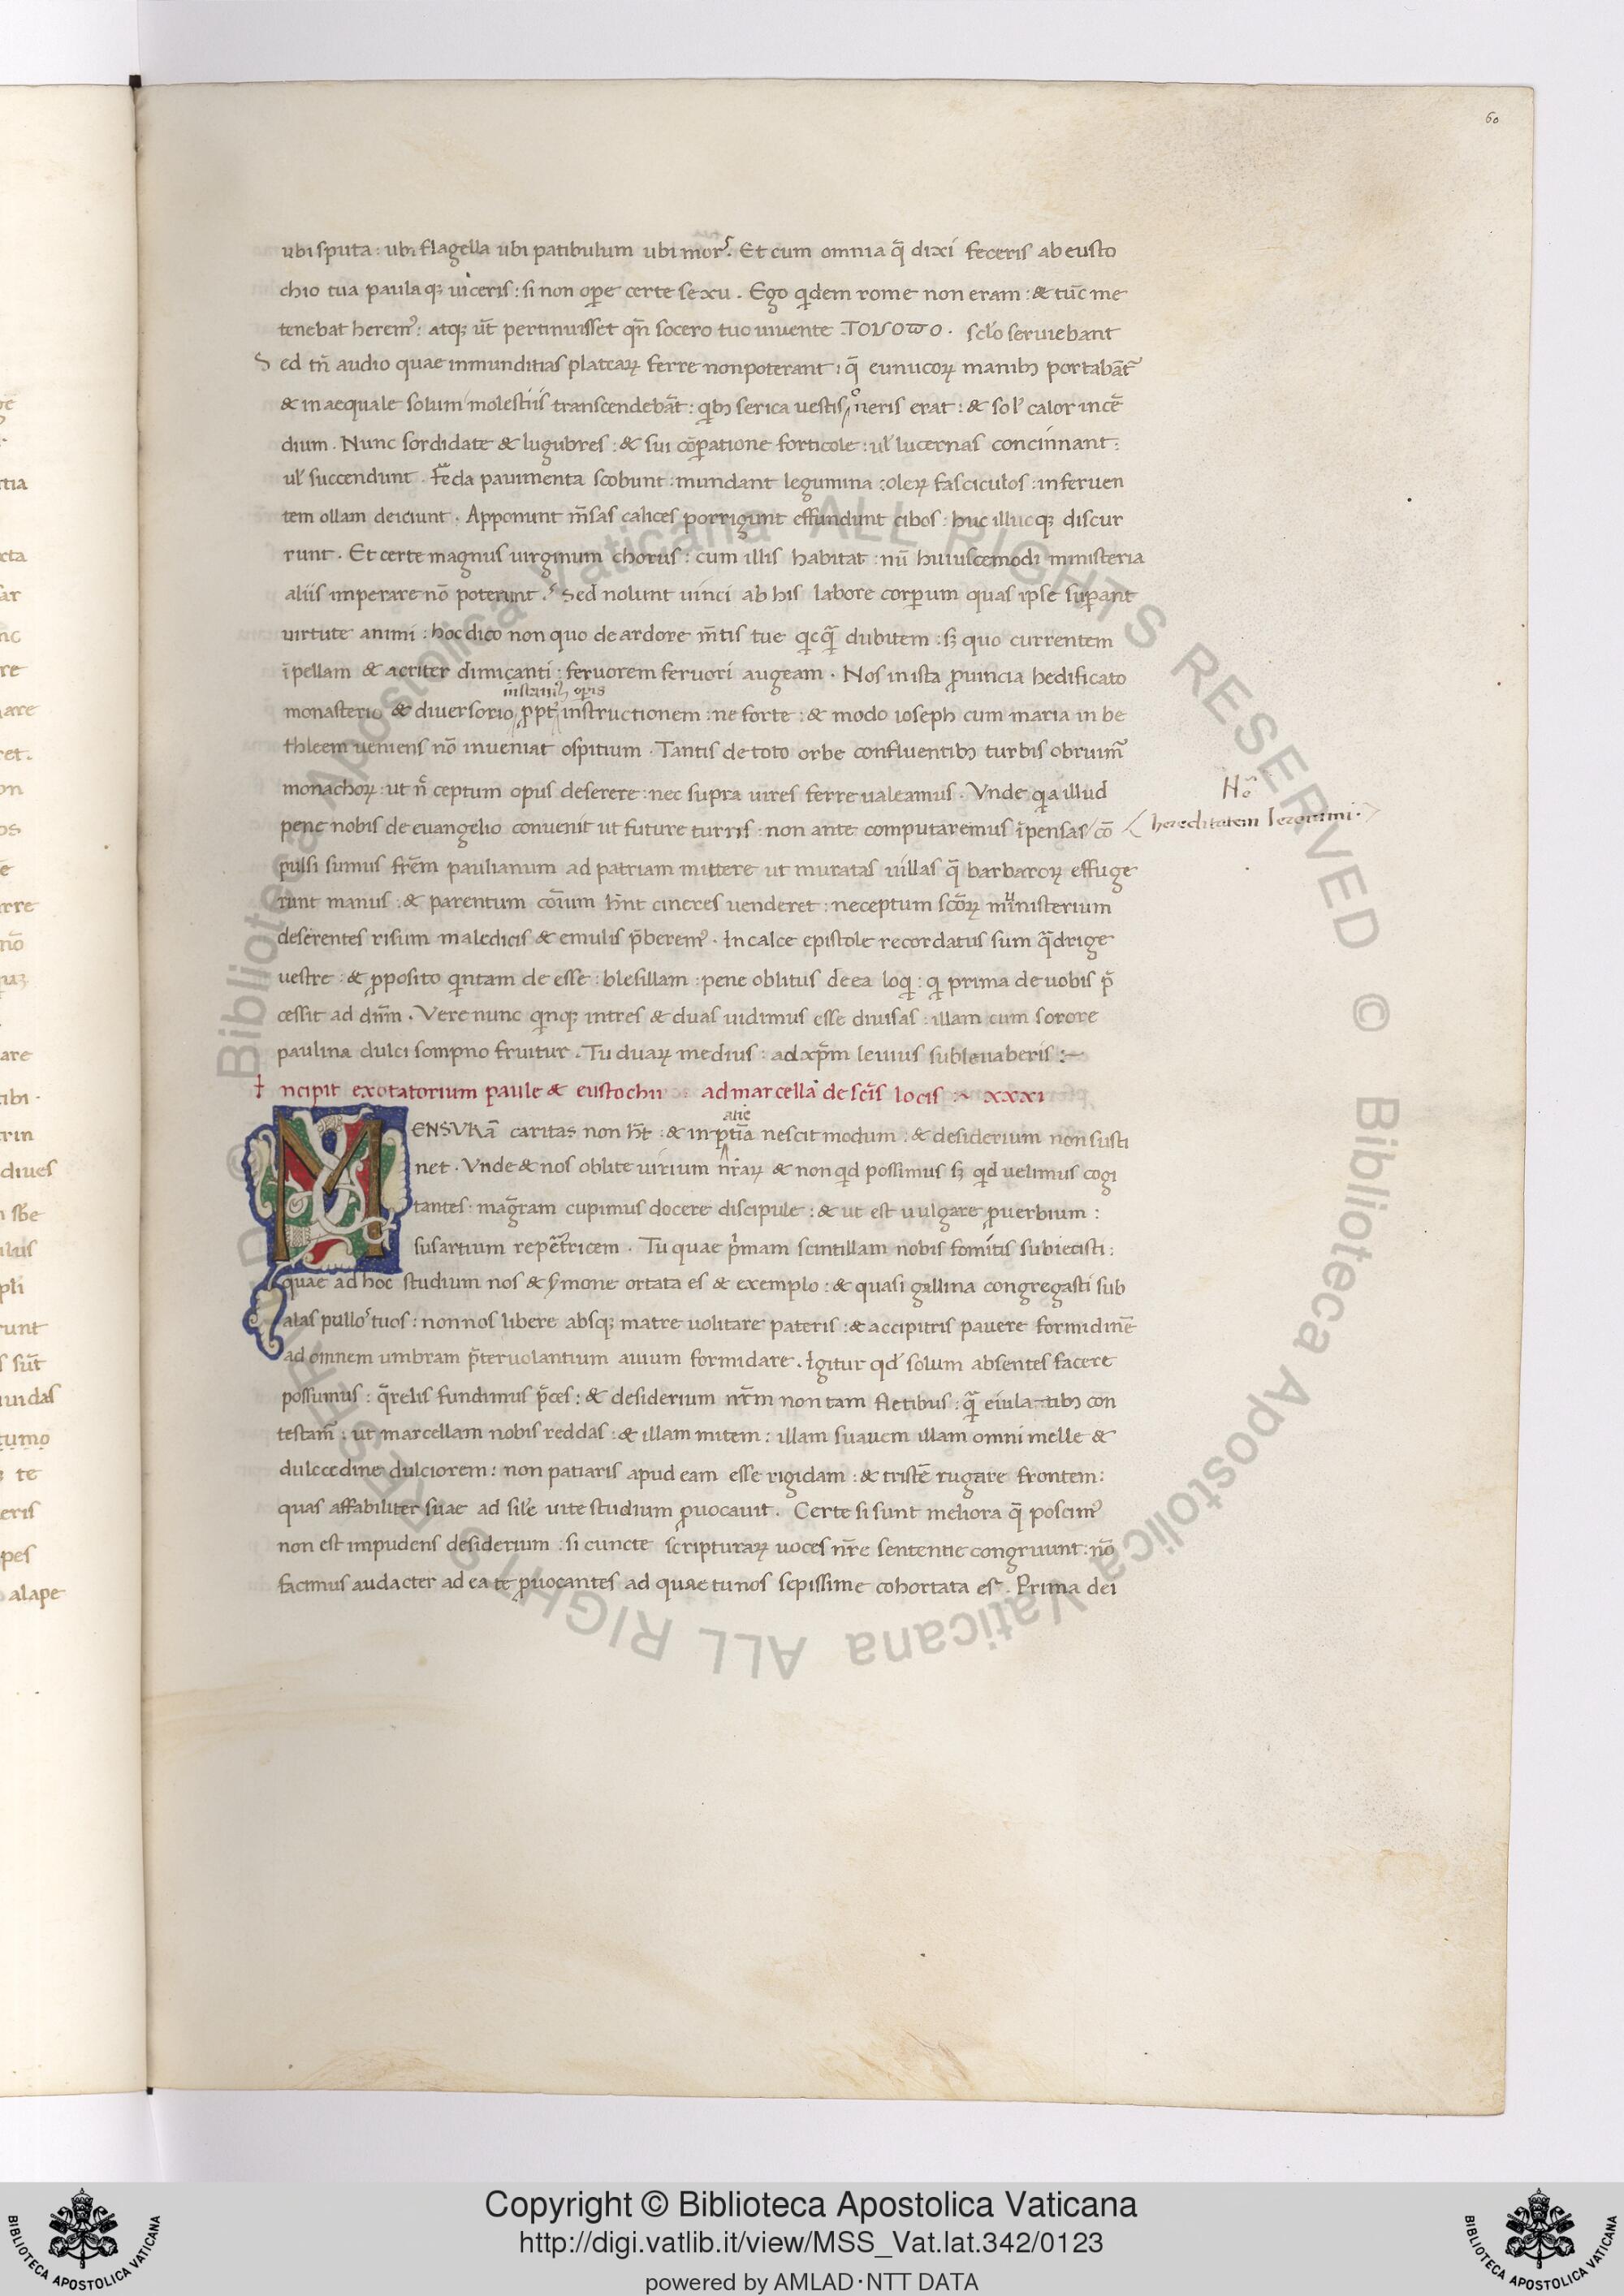 60
ubi sputa : ubi flagella ubi patibulum ubi mors. Et cum omnia q̃ dixi feceris ab eusto
chio tua paula qʒ uiceris : si non oꝑe certe sexu . Ego q̇dem rome non eram : & tũc me
tenebat herem⁹ : atqʒ ut̃ pertinuisset qñ socero tuo uiuente . sclo seruiebant
Sed tñ audio quae inmunditias plateaꝝ ferre non poterant : q̃ eunucoꝝ manibʒ portabãt̃
& inaequale solum molestiis transcendebãt : qibʒ serica uestis oneris erat : & sol' calor incẽ
dium . Nunc sordidate & lugubres : & sui cõꝑatione forticole : ul' lucernas concinnant :
ul' succendunt . Feda pauimenta scobunt : mundant legumina : oleꝝ fasciculos : in feruen
tem ollam deiciunt . Apponunt m̃sas calices porrigunt effundunt cibos : huc illucqʒ discur
runt . Et certe magnus uirginum chorus : cum illis habitat : nũ huiuscemodi ministeria
aliis imperare nõ poterunt . Sed nolunt uinci ab his labore corꝑum quas ipse suꝑant
uirtute animi : hoc dico non quo de ardore m̃tis tue qicq̃ dubitem : sʒ quo currentem
ĩpellam & acriter dimicanti : feruorem feruori augeam . Nos in ista ꝓuincia hedificato
instamʒ oꝑis
monasterio & diuersorio ꝓpt' instructionem : ne forte : & modo ioseph cum maria in be
thleem ueniens nõ inueniat ospitium . Tantis de toto orbe confluentibʒ turbis obruim̃
monachoꝝ : ut ñ ceptum opus deserere : nec supra uires ferre ualeamus . Vnde qia illud
pene nobis de euangelio conuenit ut future turris : non ante computaremus ĩpensas / cõ
Nõ
hereditatem Ieronimi .
pulsi sumus frẽm paulianum ad patriam mittere ut muratas uillas q̃ barbaroꝝ effuge
runt manus : & parentum cõium hñt cineres uenderet : ne ceptum scõꝝ ministerium
deserentes risum maledicis & emulis p̃berem⁹ . In calce epistole recordatus sum q̃drige
uestre : & ꝓposito qintam de esse : blesillam : pene oblitus de ea loqi : qi prima de uobis p̃
cessit ad dñm . Vere nunc qinqʒ in tres & duas uidimus esse diuisas : illam cum sorore
paulina dulci sompno fruitur . Tu duaꝝ medius : ad xp̃m leuius subleuaberis :~
Incipit exotatorium paule & eustochii ad marcella de sc̃is locis :~ xxxi
atie
MENSVRÃ caritas non h̃t : & inptĩa nescit modum : & desiderium non susti
net . Vnde & nos oblite uirium nr̃aꝝ & non qid possimus sʒ qid uelimus cogi
tantes . mag̃ram cupimus docere discipule : & ut est uulgare ꝓuerbium :
sus artium repet̃ricem . Tu quae pimam scintillam nobis fomitis subiecisti :
quae ad hoc studium nos & ẏmone ortata es & exemplo : & quasi gallina congregasti sub
alas pullos tuos : non nos libere absqʒ matre uolitare pateris : & accipitris pauere formidinẽ
ad omnem umbram p̃teruolantium auium formidare . Igitur qd' solum absentes facere
possumus : q̃relis fundimus p̃ces : & desiderium nr̃m non tam fletibus : q̃ eiulatibʒ con
testam̃ : ut marcellam nobis reddas : & illam mitem : illam suauem illam omni melle &
dulcedine dulciorem : non patiaris apud eam esse rigidam : & tristẽ rugare frontem :
quas affabiliter suae ad sil'e uite studium ꝓuocauit . Certe si sunt meliora q̃ poscim⁹
non est impudens desiderium : si cuncte scripturaꝝ uoces nr̃e sententie congruunt : nõ
facimus audacter ad ea te ꝓuocantes ad quae tu nos sepissime cohortata es . Prima dei
Copyright © Biblioteca Apostolica Vaticana
http://digi.vatlib.it/view/MSS_Vat.lat.342/0123
powered by AMLAD·NTT DATA
BIBLIOTECA APOSTOLICA VATICANA
BIBLIOTECA APOSTOLICA VATICANA
© Biblioteca Apostolica Vaticana ALL RIGHTS RESERVED © Biblioteca Apostolica Vaticana ALL RIGHTS RESERVED